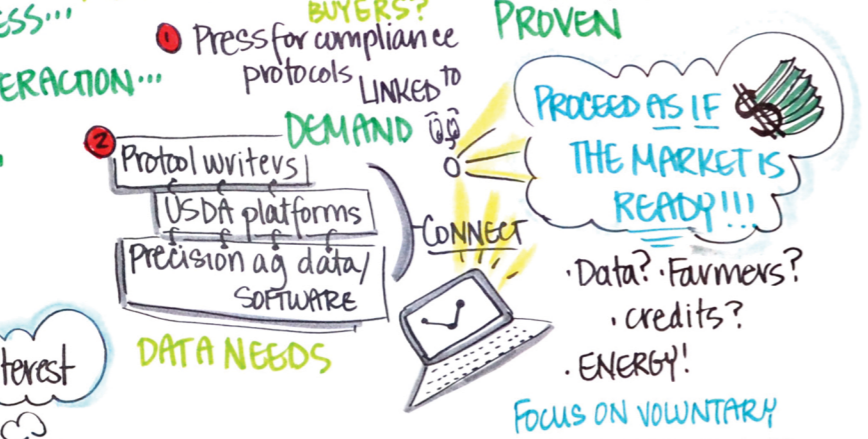 ESS...
ERACTION...
BUYERS?
1 Press for compliance
protocols LINKED to
DEMAND
2
Protool writers
USDA platforms
Precision ag data/
SOFTWARE
CONNECT
DATA NEEDS
terest
PROVEN
PROCEED AS IF
THE MARKET IS
READY!!!
$
·Data? ·Farmers?
·credits?
·ENERGY!
FOCUS ON VOLUNTARY